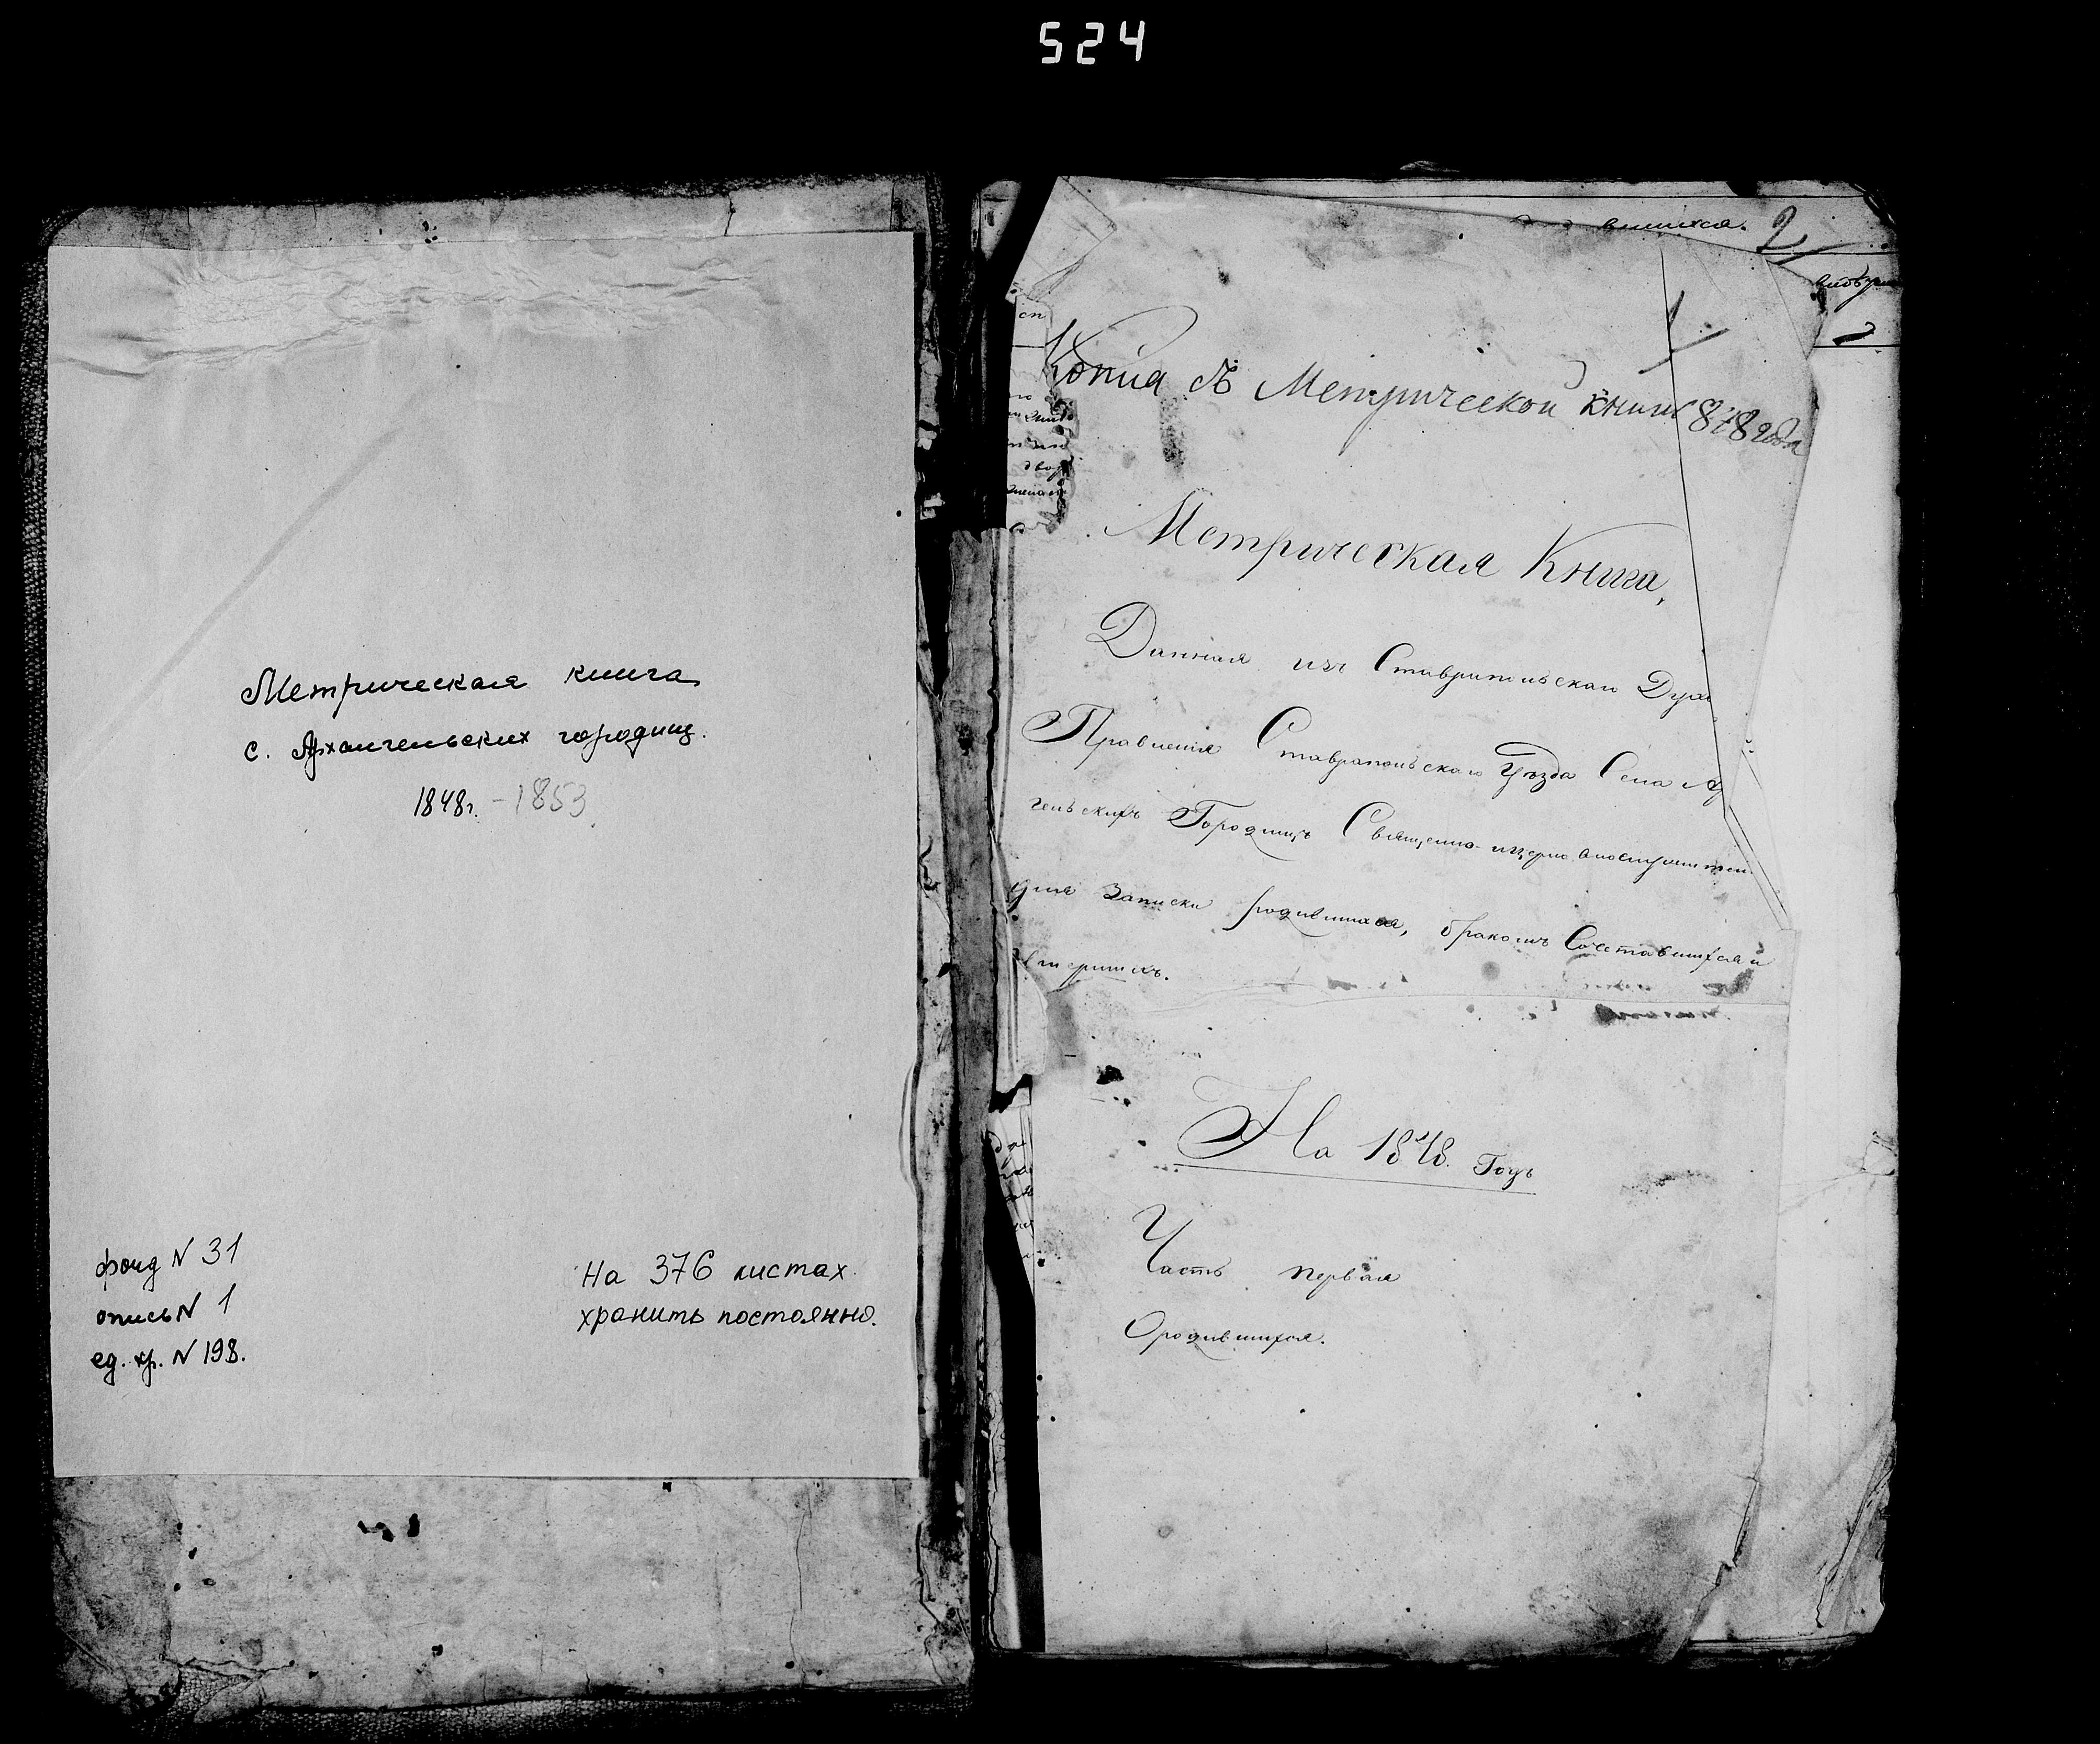 524
Метрическая книга
с. Архангельских городищ.
1848г. - 1853
фонд N 31
опись N 1
ед. хр. N 198.
На 376 листах
хранить постоянно.
вшихся. 2
1
Копия съ Метрической книги 1848 года
Метрическая Книга,
Данная изъ Ставропольскаго Духо
Правления Ставропольскаго Уѣзда Села Ар
гельскихъ Городищъ Священно-церковнослужител
для Записки родившихся, бракомъ Сочетавшихся и
умершихъ.
На 1848. Годъ
Часть первая
О родившихся.